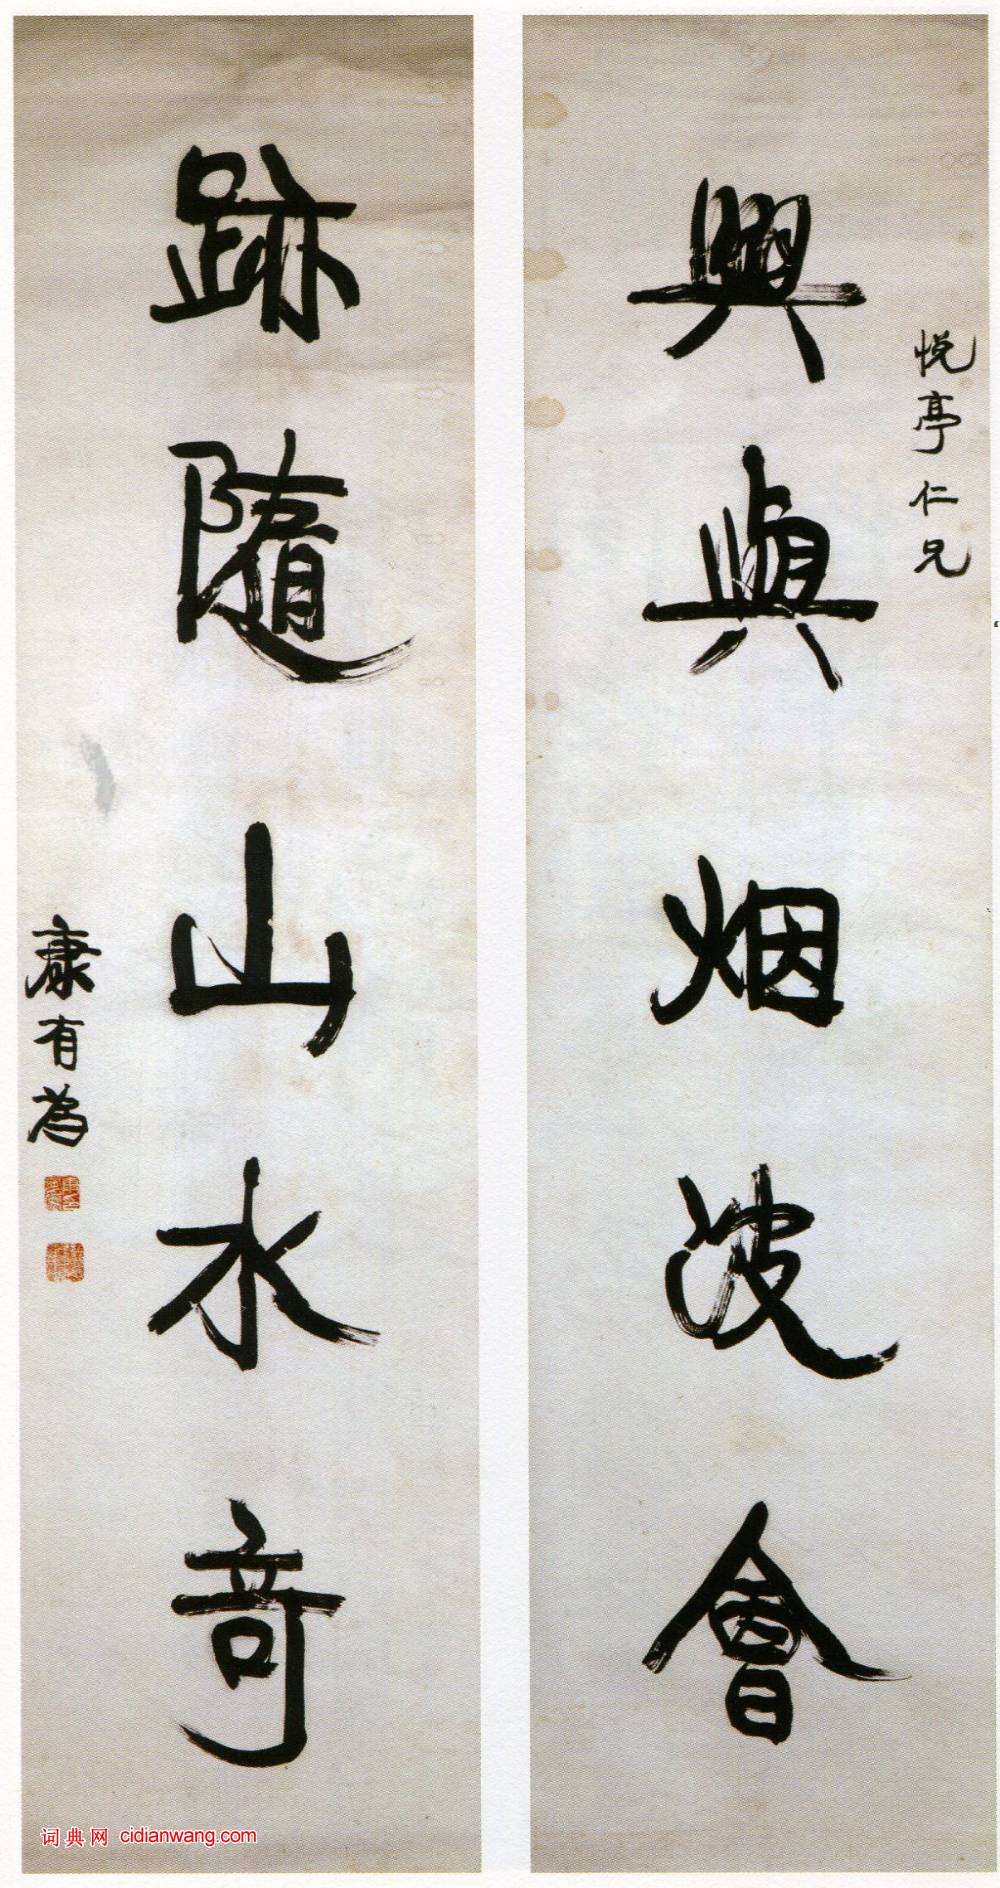 悦亭仁兄
興與烟波會
跡隨山水奇
康有為
词典网 cidianwang.com